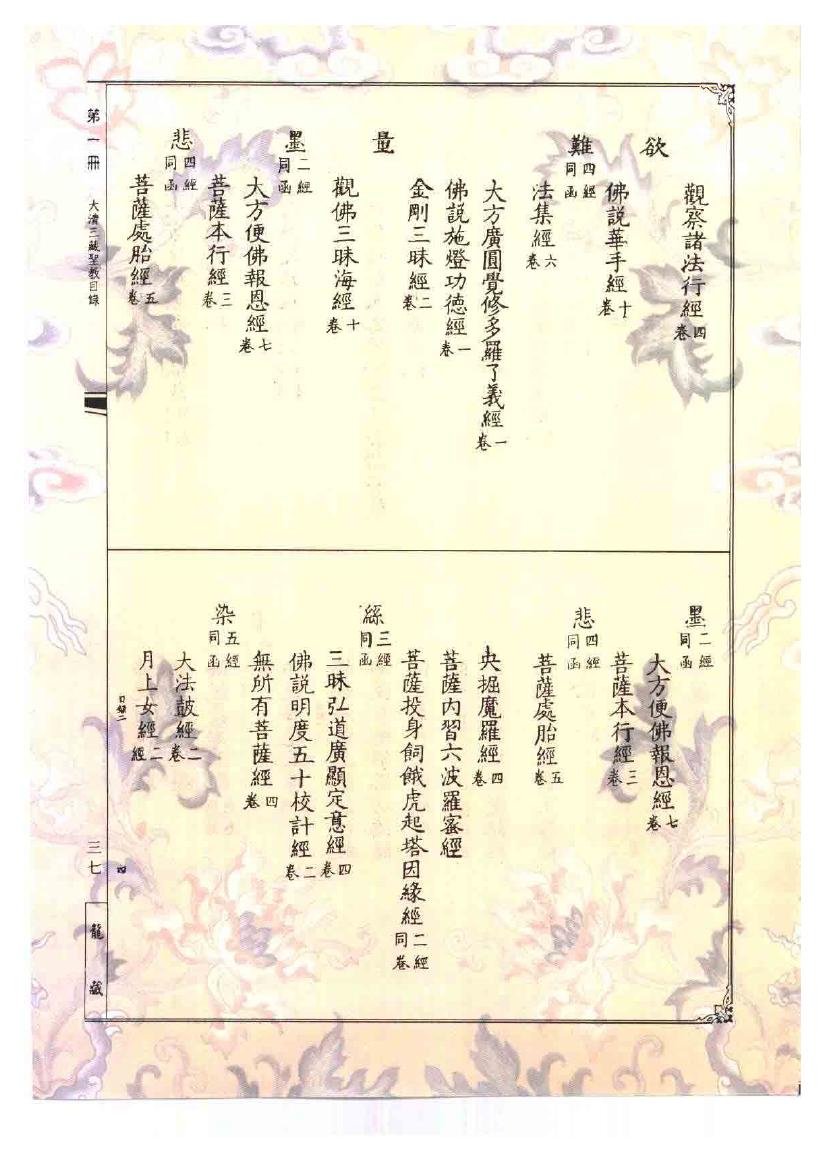 觀察諸法行經四卷
欲
佛說華手經十卷
難四經同函
法集經六卷
大方廣圓覺修多羅了義經一卷
佛說施燈功德經一卷
金剛三昧經二卷
量
觀佛三昧海經十卷
墨二經同函
大方便佛報恩經七卷
菩薩本行經三卷
悲四經同函
菩薩處胎經五卷
墨二經同函
大方便佛報恩經七卷
菩薩本行經三卷
悲四經同函
菩薩處胎經五卷
央掘魔羅經四卷
菩薩內習六波羅蜜經
菩薩投身飼餓虎起塔因緣經二經同卷
絲三經同函
三昧弘道廣顯定意經四卷
佛說明度五十校計經二卷
無所有菩薩經四卷
染五經同函
大法鼓經二卷
月上女經二經
目錄二
四
第一冊
大清三藏聖教目錄
三七
龍藏